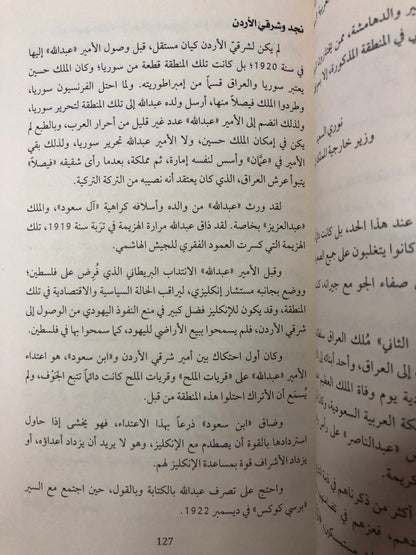 نجد وشرقيّ الأردن
لم يكن لشرقيّ الأردن كيان مستقل، قبل وصول الأمير «عبدالله» إليها
في سنة 1920؛ بل كانت تلك المنطقة قطعة من سوريا؛ وكان الملك حسين
يعتبر سوريا والعراق قسماً من إمبراطوريته. ولما احتل الفرنسيون سوريا،
وطردوا الملك فيصلاً منها، أرسل ولده عبدالله إلى تلك المنطقة لتحرير سوريا،
ولذلك انضم إلى الأمير «عبدالله» عدد غير قليل من أحرار العرب، وبالطبع لم
يكن في إمكان الملك حسين، ولا الأمير عبدالله تحرير سوريا، ولذلك بقي
الأمير في «عمَّان» وأسس لنفسه إمارة، ثم مملكة، بعدما رأى شقيقه «فيصلاً»
يتبوأ عرش العراق، الذي كان يعتقد أنه نصيبه من التركة التركية.
لقد ورث «عبدالله» من والده وأسلافه كراهية «آل سعود»، والملك
«عبدالعزيز» بخاصة. لقد ذاق عبدالله مرارة الهزيمة في تربَة سنة 1919، تلك
الهزيمة التي كسرت العمود الفقري للجيش الهاشمي.
وقبل الأمير «عبدالله» الانتداب البريطاني الذي فُرض على فلسطين؛
ووضع بجانبه مستشار إنكليزي، ليراقب الحالة السياسية والاقتصادية في تلك
المنطقة، وقد يكون للإنكليز فضل كبير في منع النفوذ اليهودي من الوصول إلى
شرقي الأردن، فلم يسمحوا ببيع الأراضي لليهود، كما سمحوا بها في فلسطين.
وكان أول احتكاك بين أمير شرقي الأردن و«ابن سعود»، هو اعتداء
الأمير «عبدالله» على «قريات الملح» وقريات الملح كانت دائماً تتبع الجَوْف، ولم
يُسمَع أن الأتراك احتلوا هذه المنطقة من قبل.
وضاق «ابن سعود» ذرعاً بهذا الاعتداء، فهو يخشى إذا حاول
استردادها بالقوة أن يصطدم مع الإنكليز، وهو لا يريد أن يزداد أعداؤه، أو
يزداد الأشراف قوة بمساعدة الإنكليز لهم.
واحتج على تصرف عبدالله بالكتابة وبالقول، حين اجتمع مع السير
«برسي كوكس» في ديسمبر 1922.
127
ير والدهامشة، ممن يختارون
في المنطقة المذكورة، إلا بعد
نوري السعيد
وزير خارجية المملكة
عند هذا الحد، بل كانت
كانوا يتغلبون على جميع
صفاء الجو مع جيرانه
الثاني» مُلك العراق
إلى العراق، وأحد أبنائه
يوم وفاة الملك العظيم
كة العربية السعودية،
«عبدالناصر» على رأس
كريمة.
أكثر من ذكرناهم في